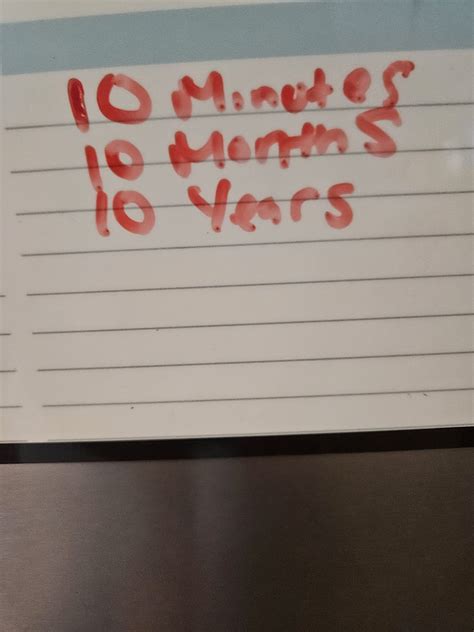 10 Minutes
10 Months
10 Years